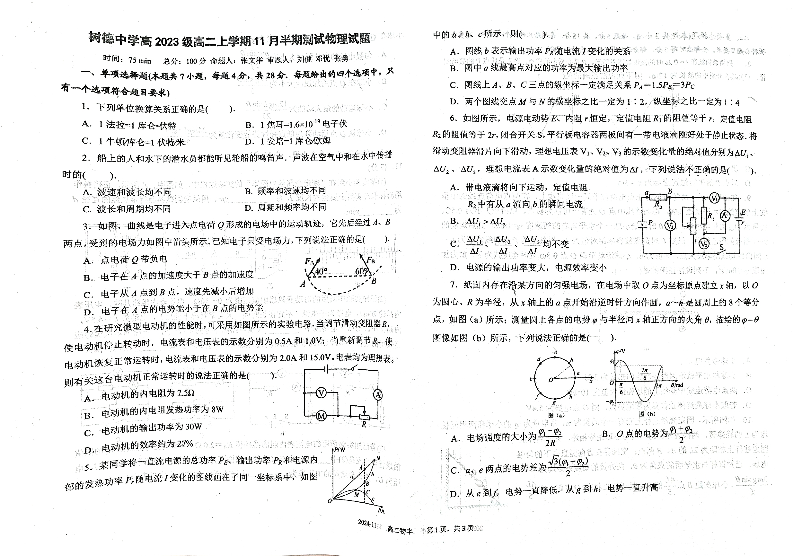 树德中学高 2023 级高二上学期 11 月半期测试物理试题
时间：75 min 总分：100 分 命题人：张文平 审题人：刘僖 邓悦 张勇
一、单项选择题(本题共 7 小题，每题 4 分，共 28 分．每题给出的四个选项中，只
有一个选项符合题目要求)
1．下列单位换算关系正确的是( )．
A．1 法拉=1 库仑·伏特
B．1 焦耳=1.6×10 电子伏
C．1 牛顿/库仑=1 伏特/米
D．1 安培=1 库仑/欧姆
2．船上的人和水下的潜水员都能听见轮船的鸣笛声，声波在空气中和在水中传播
时的( )．
A．波速和波长均不同
B．频率和波速均不同
C．波长和周期均不同
D．周期和频率均不同
3．如图，曲线是电子进入点电荷 Q 形成的电场中的运动轨迹，它先后经过 A、B
两点，受到的电场力如图中箭头所示．已知电子只受电场力，下列说法正确的是( )．
A．点电荷 Q 带负电
B．电子在 A 点的加速度大于 B 点的加速度
C．电子从 A 点到 B 点，速度先减小后增加
D．电子在 A 点的电势能小于在 B 点的电势能
40° 60°
A B
4．在研究微型电动机的性能时，可采用如图所示的实验电路．当调节滑动变阻器 R，
使电动机停止转动时，电流表和电压表的示数分别为 0.5A 和 1.0V；当重新调节 R，使
电动机恢复正常运转时，电流表和电压表的示数分别为 2.0A 和 15.0V．电表均为理想表，
则有关这台电动机正常运转时的说法正确的是( )．
A．电动机的内电阻为 7.5Ω
B．电动机的内电阻发热功率为 8W
C．电动机的输出功率为 30W
D．电动机的效率约为 27%
V A
M
R
5．某同学将一直流电源的总功率 PE、输出功率 PR 和电源内
部的发热功率 Pr 随电流 I 变化的图线画在了同一坐标系中，如图
P/W
中的 a、b、c 所示，则( )．
A．图线 b 表示输出功率 PR 随电流 I 变化的关系
B．图中 a 线最高点对应的功率为最大输出功率
C．图线上 A、B、C 三点的纵坐标一定满足关系 PA=1.5PB=3PC
D．两个图线交点 M 与 N 的横坐标之比一定为 1∶2，纵坐标之比一定为 1∶4
6．如图所示，电源电动势 E、内阻 r 恒定，定值电阻 R1 的阻值等于 r，定值电阻
R2 的阻值等于 2r，闭合开关 S，平行板电容器两板间有一带电液滴刚好处于静止状态．将
滑动变阻器滑片向下滑动，理想电压表 V1、V2、V3 的示数变化量的绝对值分别为 ΔU1、
ΔU2、ΔU3，理想电流表 A 示数变化量的绝对值为 ΔI，下列说法不正确的是( )．
A．带电液滴将向下运动，定值电阻
R2 中有从 a 流向 b 的瞬间电流
B．ΔU1＞ΔU2
C．ΔU1/ΔI、ΔU2/ΔI、ΔU3/ΔI 均不变
D．电源的输出功率变大，电源效率变小
7．纸面内存在沿某方向的匀强电场，在电场中取 O 点为坐标原点建立 x 轴，以 O
为圆心、R 为半径，从 x 轴上的 a 点开始沿逆时针方向作圆，a～h 是圆周上的 8 个等分
点，如图（a）所示；测量圆上各点的电势 φ 与半径同 x 轴正方向的夹角 θ，描绘的 φ-θ
图像如图（b）所示，下列说法正确的是( )．
图（a） 图（b）
A．电场强度的大小为 (φ1−φ2)/2R
B．O 点的电势为
C．a、e 两点的电势差为 √3(φ1−φ2)/2
D．从 e 到 f，电势一直降低，从 g 到 h，电势一直升高
高二物理 第 1 页，共 3 页